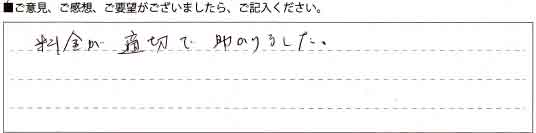 ■ご意見、ご感想、ご要望がございましたら、ご記入ください。
料金が適切で助かりました。